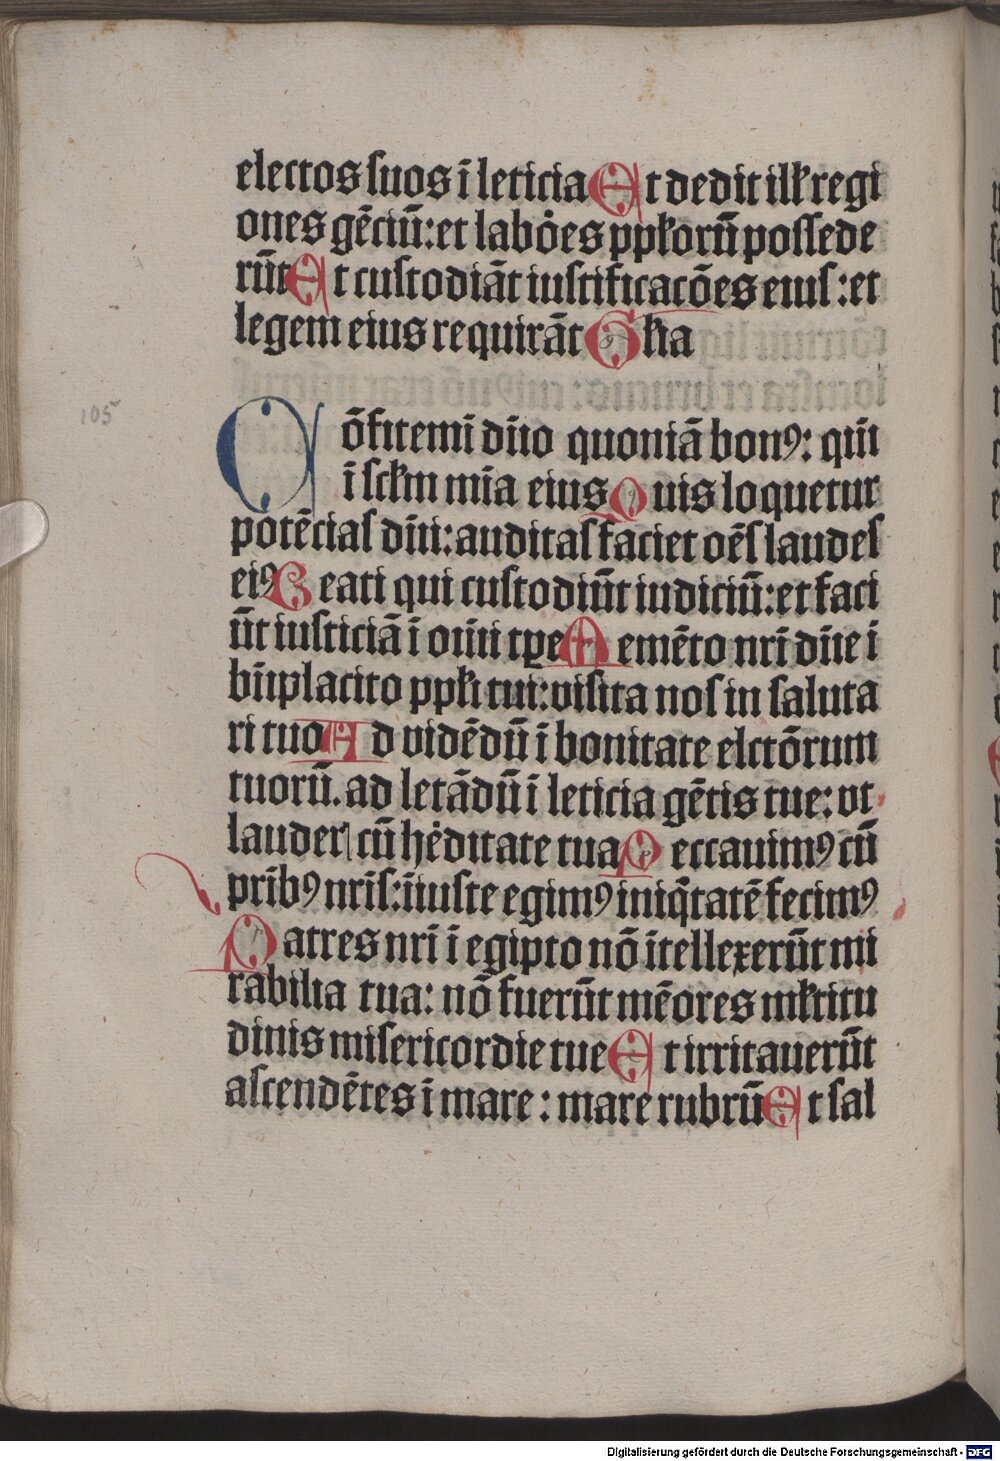 electos suos ī leticia Et dedit illꝛ regi
ones gēciū: et labōes ppl'orū possede
rūt Et custodiāt iustificacōes eius: et
legem eius requirāt Gl'ia
105
Cōfitemī dn̄o quoniā bonꝰ: qm̄
ī sclm̄ mīa eius Quis loquetur
potēcias dn̄i: auditas faciet oēs laudes
eiꝰ Beati qui custodiūt iudiciū: et faci
ūt iusticiā ī om̄i tꝑe Memēto nr̄i dn̄e ī
bn̄placito ppl'i tui: visita nos in saluta
ri tuo Ad vidēdū ī bonitate elctōrum
tuorū. ad letādū ī leticia gētis tue: vt
lauder cū hēditate tua Peccauimꝰ cū
pribꝰ nr̄is: īiuste egimꝰ iniq̄tatē fecimꝰ
Patres nr̄i ī egipto nō ītellexerūt mi
rabilia tua: nō fuerūt mēores ml'titu
dinis misericordie tue Et irritauerūt
ascendētes ī mare: mare rubrū Et sal
Digitalisierung gefördert durch die Deutsche Forschungsgemeinschaft - DFG